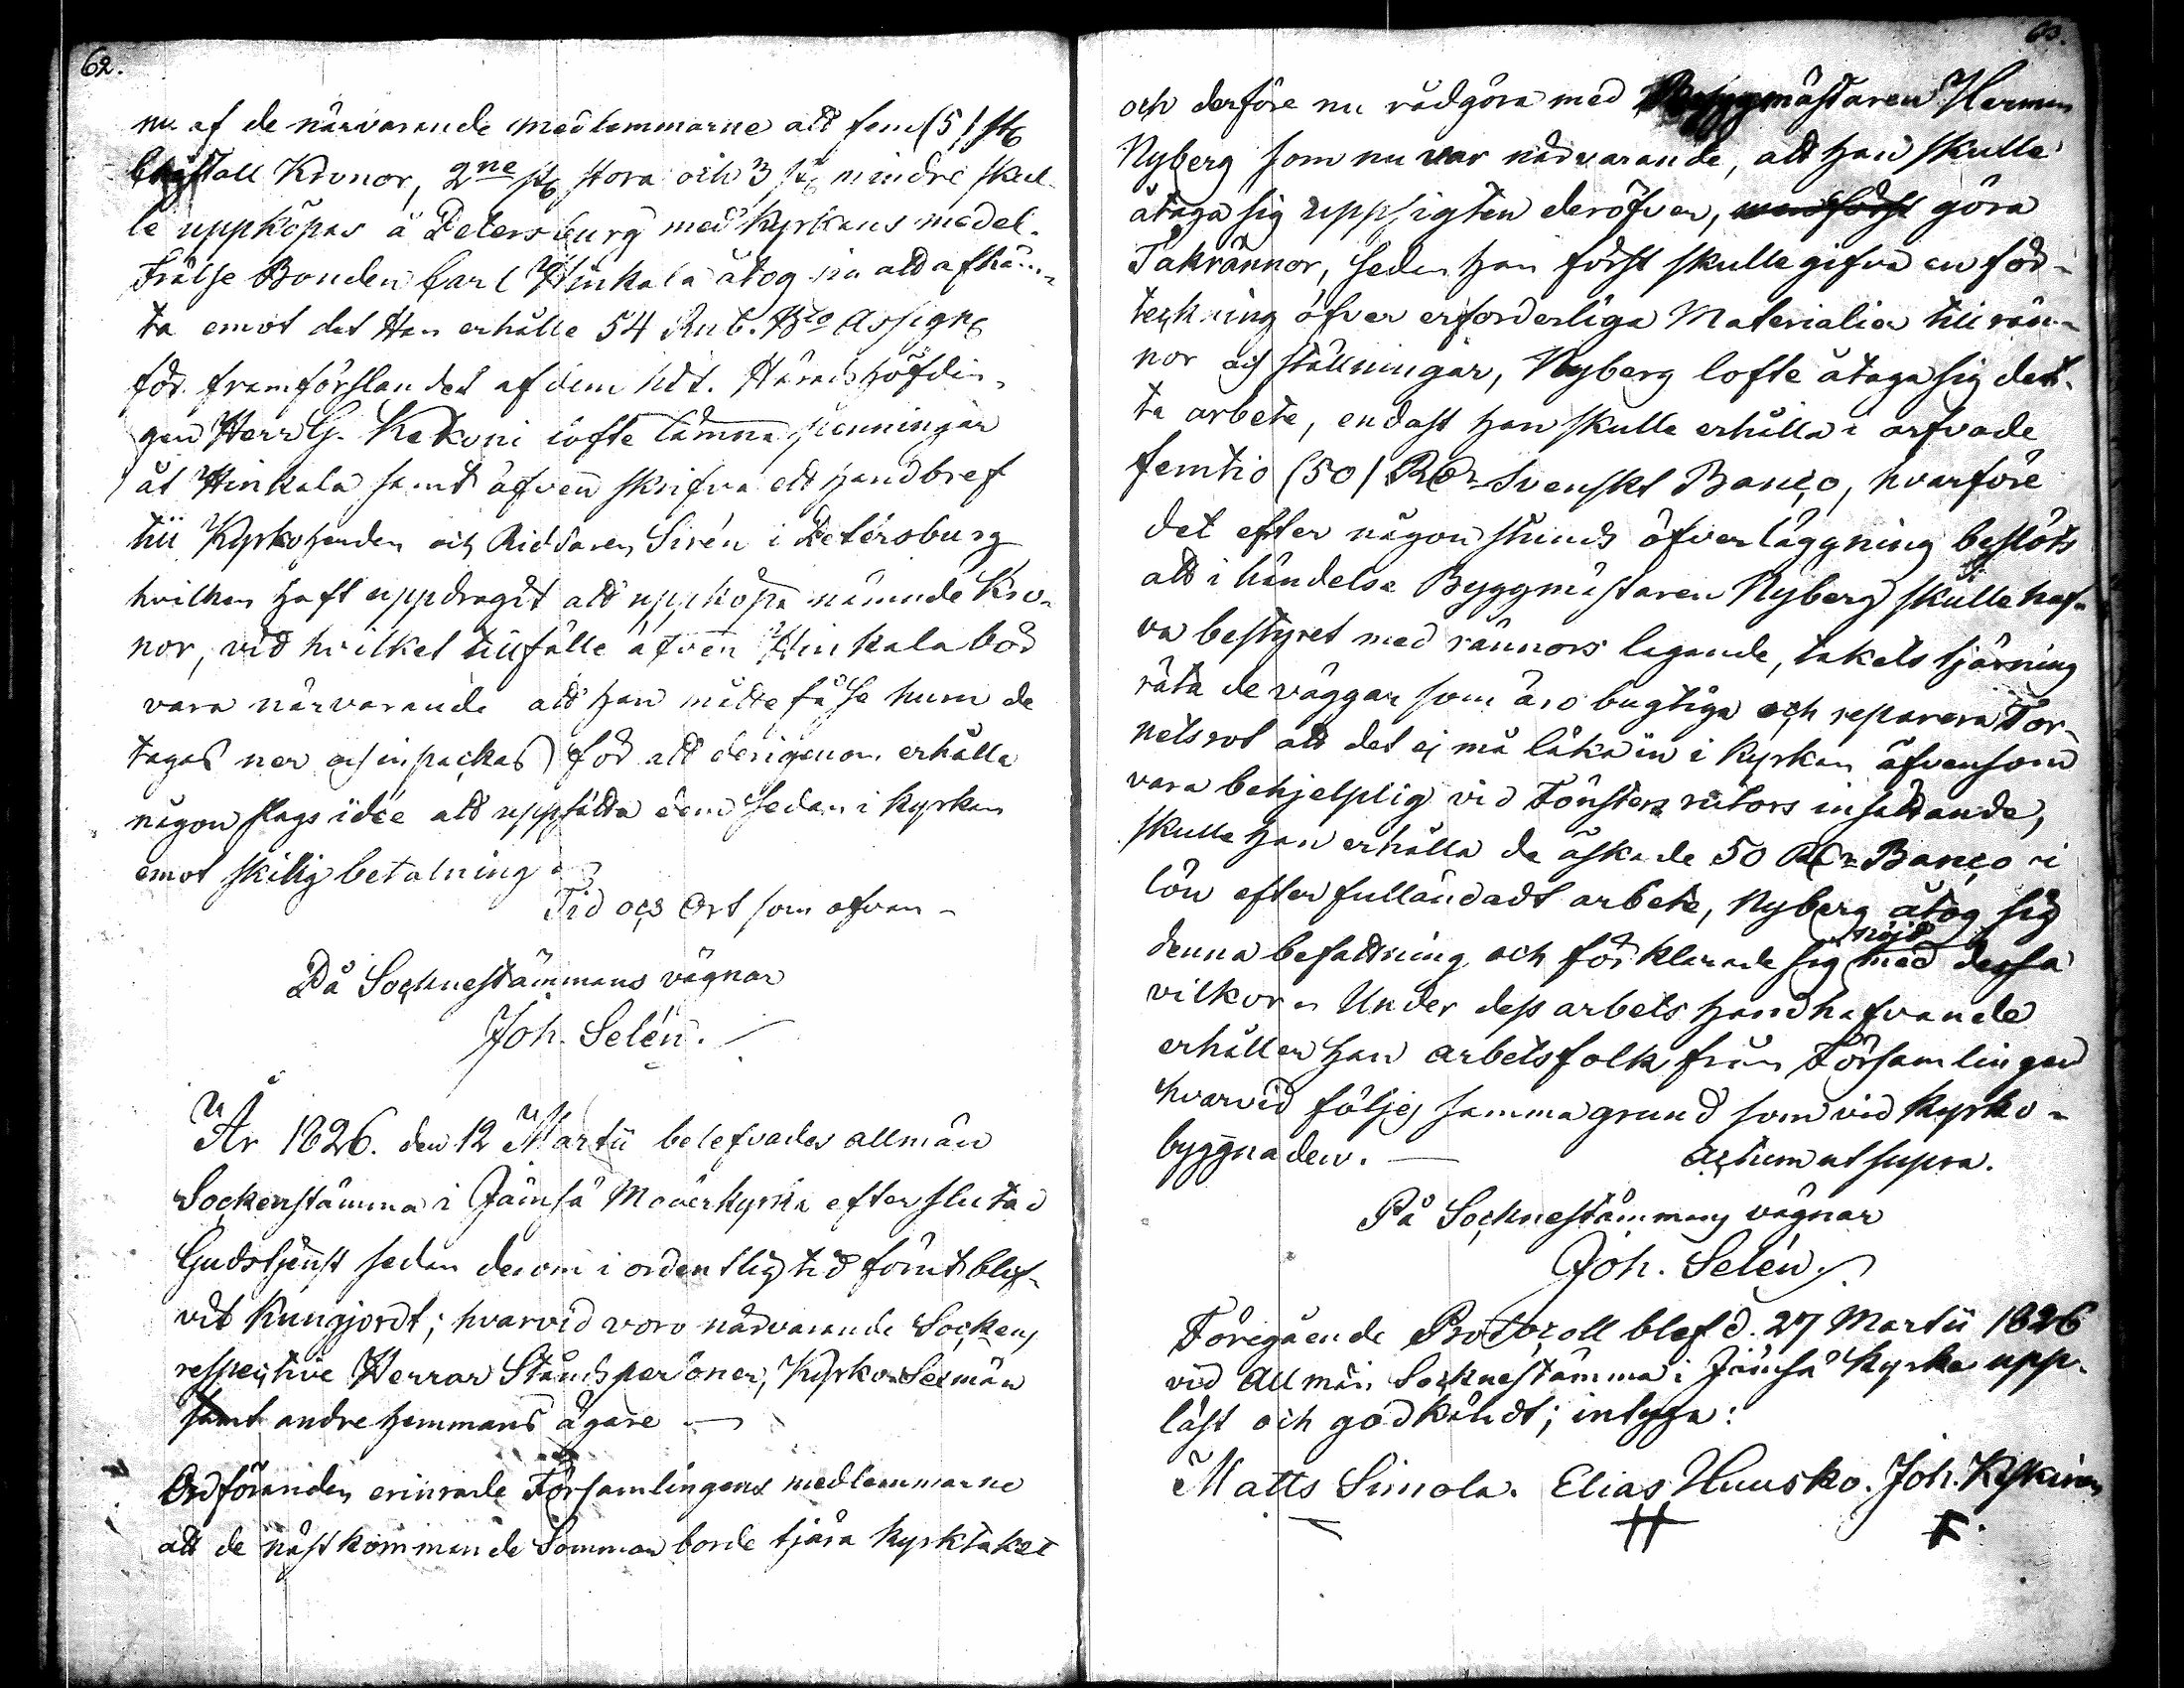 62.
nu af de närvarande medlemmarne att fem (5) st
Christall Kronor, 2ne st stora och 3 st mindre skul-
le uppköpas å Petersburg med Kyrkans medel.
Frälse Bonden Carl Hinkala åtog sig att afhäm-
ta emot det Han erhålle 54 Rub. Bco Assign
för framförslandet af dem hit. Häradshöfdin-
gen Herr G. Kekoni lofte lämna penningar
åt Hinkala samt äfven skrifva ett handbref
till Kyrkoherden och Riddaren Sirén i Petersburg
hvilken haft uppdragit att uppköpa nämnde Kro-
nor, vid hvilket tillfälle äfven Hinkala bör
vara närvarande att han måtte få se huru de
tagas ner och inpackas för att derigenom erhålla
någon slags idée att uppsätta dem sedan i Kyrkan
emot skilig betalning
Tid och Ort som ofvan -
På Sochnestämmans vägnar
Joh. Selén.
År 1826. den 12 Martii belefvades allmän
Sockenstämma i Jämsä Moderkyrka efter slutad
Gudstjenst sedan derom i ordentlig tid förut blif-
vit kungjordt; hvarvid voro närvarande Sockens
respective Herrar Ståndspersoner, Kyrko Sexmän
samt andre hemmans ägare —
Ordföranden erinrade Församlingens medlemmarne
att de nästkommande Sommar borde tjära Kyrktaket
63.
och derföre nu rådgöra med Byggmästaren Herman
Nyberg som nu var närvarande, att han skulle
åtaga sig uppsigten deröfver, göra
Takrännor, sedan han först skulle gifva en för-
teckning öfver erforderliga Materialier till rän-
nor och ställningar, Nyberg lofte åtaga sig det-
ta arbete, endast han skulle erhålla i arfvode
femtio (50) Rdr Svenskt Banco, hvarföre
det efter någon stunds öfverläggning beslöts
att i händelse Byggmästaren Nyberg skulle haf-
va bestyret med rännors lagande, takets tjärning
räta de väggar som äro bugtiga och reparera Tor-
nets rot att det ej må läka in i Kyrkan äfvensom
vara behjelplig vid Fönsters rutors insättande,
skulle han erhålla de äskade 50 Rdr Banco i
lön efter fulländadt arbete, Nyberg åtog sig
denna befattning och förklarade sig nöjd med dessa
vilkor. Under dess arbets handhafvande
erhåller han arbetsfolk från Församlingen
hvarvid följes samma grund som vid Kyrko-
byggnaden. — Actum ut supra.
På Sochnestämmans vägnar
Joh. Selén
Föregående Protocoll blef d. 27 Martii 1826
vid Allmän Sochnestämma i Jämsä Kyrka upp-
läst och godkändt; intyga:
Matts Simola. Elias Huusko. Joh. Kyskinen